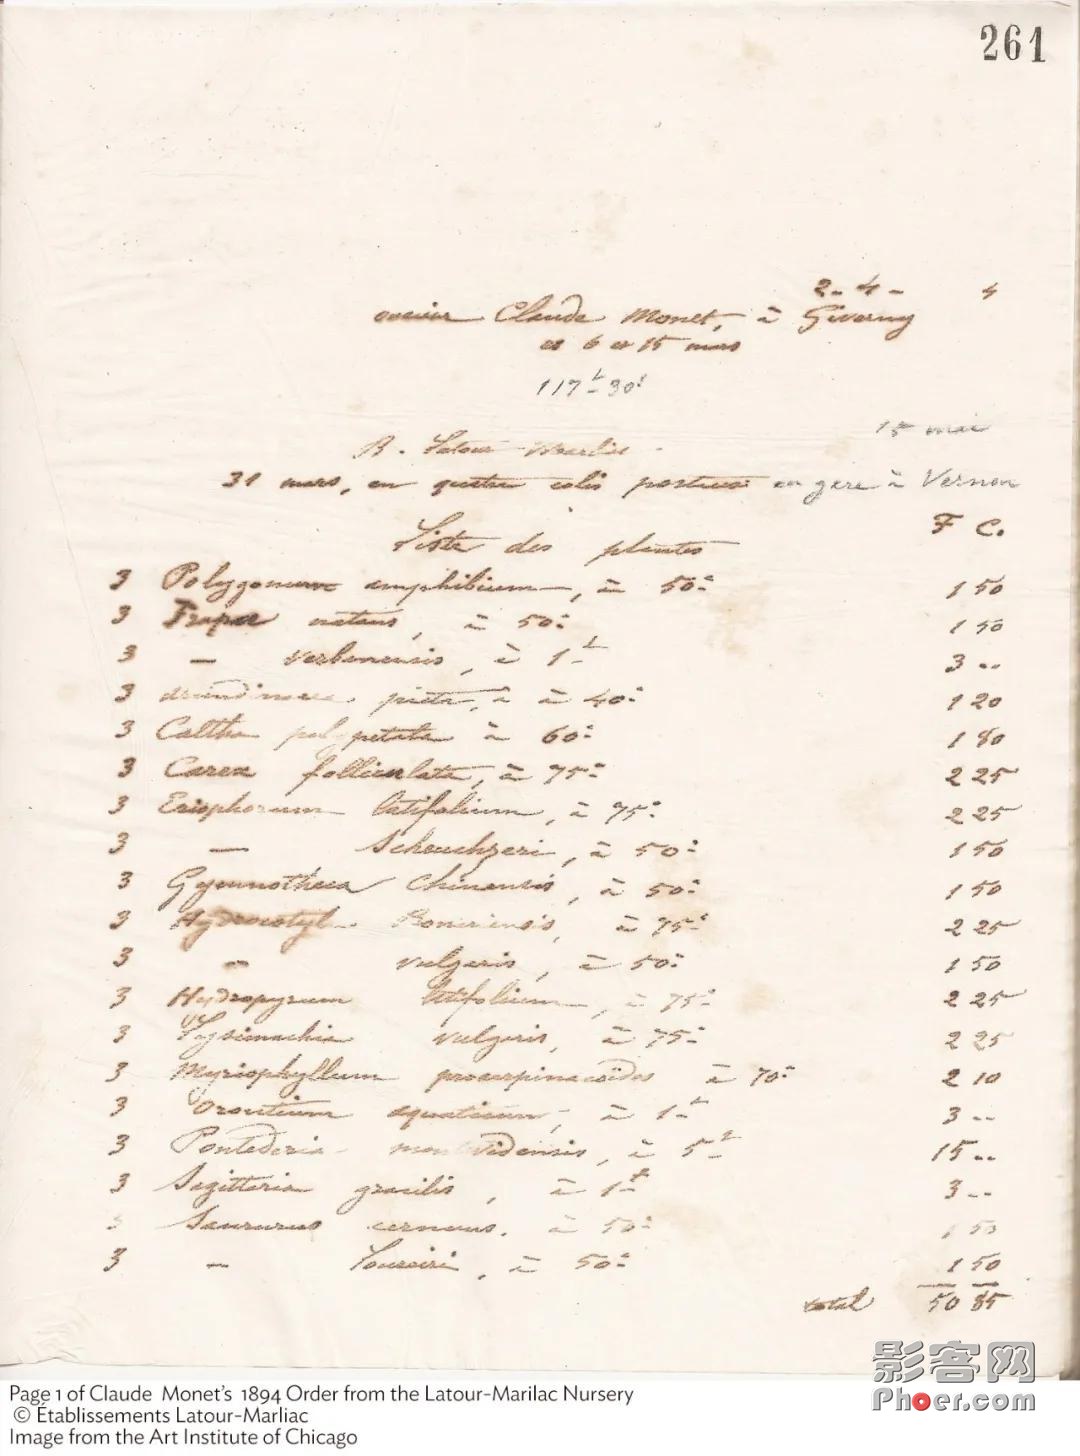 261
2 - 4 - 4
Claude Monet, à Giverny
et 6 et 15 mars
117f 30c
15 mai
B. Latour-Marliac
31 mars, en quatre colis postaux en gare à Vernon
Liste des plantes F C.
3 Polygonum amphibium, à 50c 1 50
3 Trapa natans, à 50c 1 50
3 — verbanensis, à 1f 3 ..
3 picta, à 40c 1 20
3 Caltha polypetala à 60c 1 80
3 Carex folliculata, à 75c 2 25
3 Eriophorum latifolium, à 75c 2 25
3 — Scheuchzeri, à 50c 1 50
3 Gymnotheca Chinensis, à 50c 1 50
3 Hydrocotyle Bonariensis, à 75c 2 25
3 — vulgaris, à 50c 1 50
3 Hydropyrum latifolium, à 75c 2 25
3 Lysimachia vulgaris, à 75c 2 25
3 Myriophyllum proserpinacoïdes à 70c 2 10
3 Orontium aquaticum, à 1f 3 ..
3 Pontederia montevidensis, à 5f 15 ..
3 Sagittaria gracilis, à 1f 3 ..
3 Saururus cernuus, à 50c 1 50
3 — Loureiri, à 50c 1 50
total 50 85
Page 1 of Claude Monet's 1894 Order from the Latour-Marilac Nursery
© Établissements Latour-Marliac
Image from the Art Institute of Chicago
影客网
Phoer.com